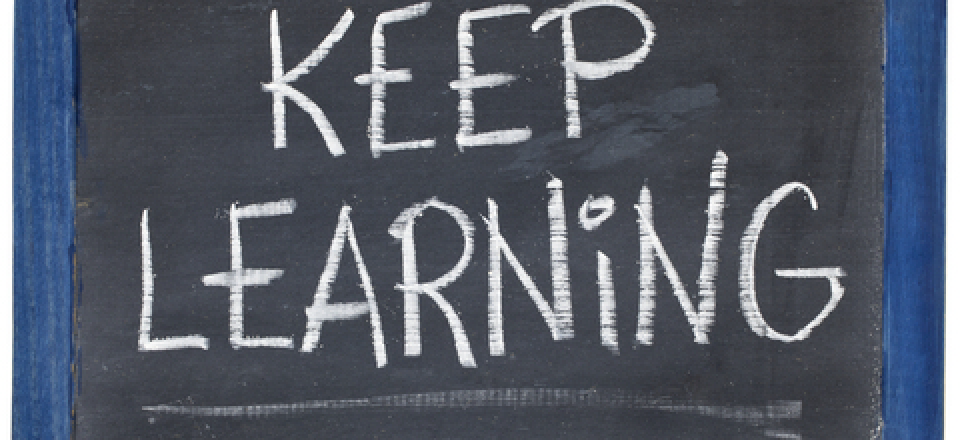 KEEP
LEARNiNG